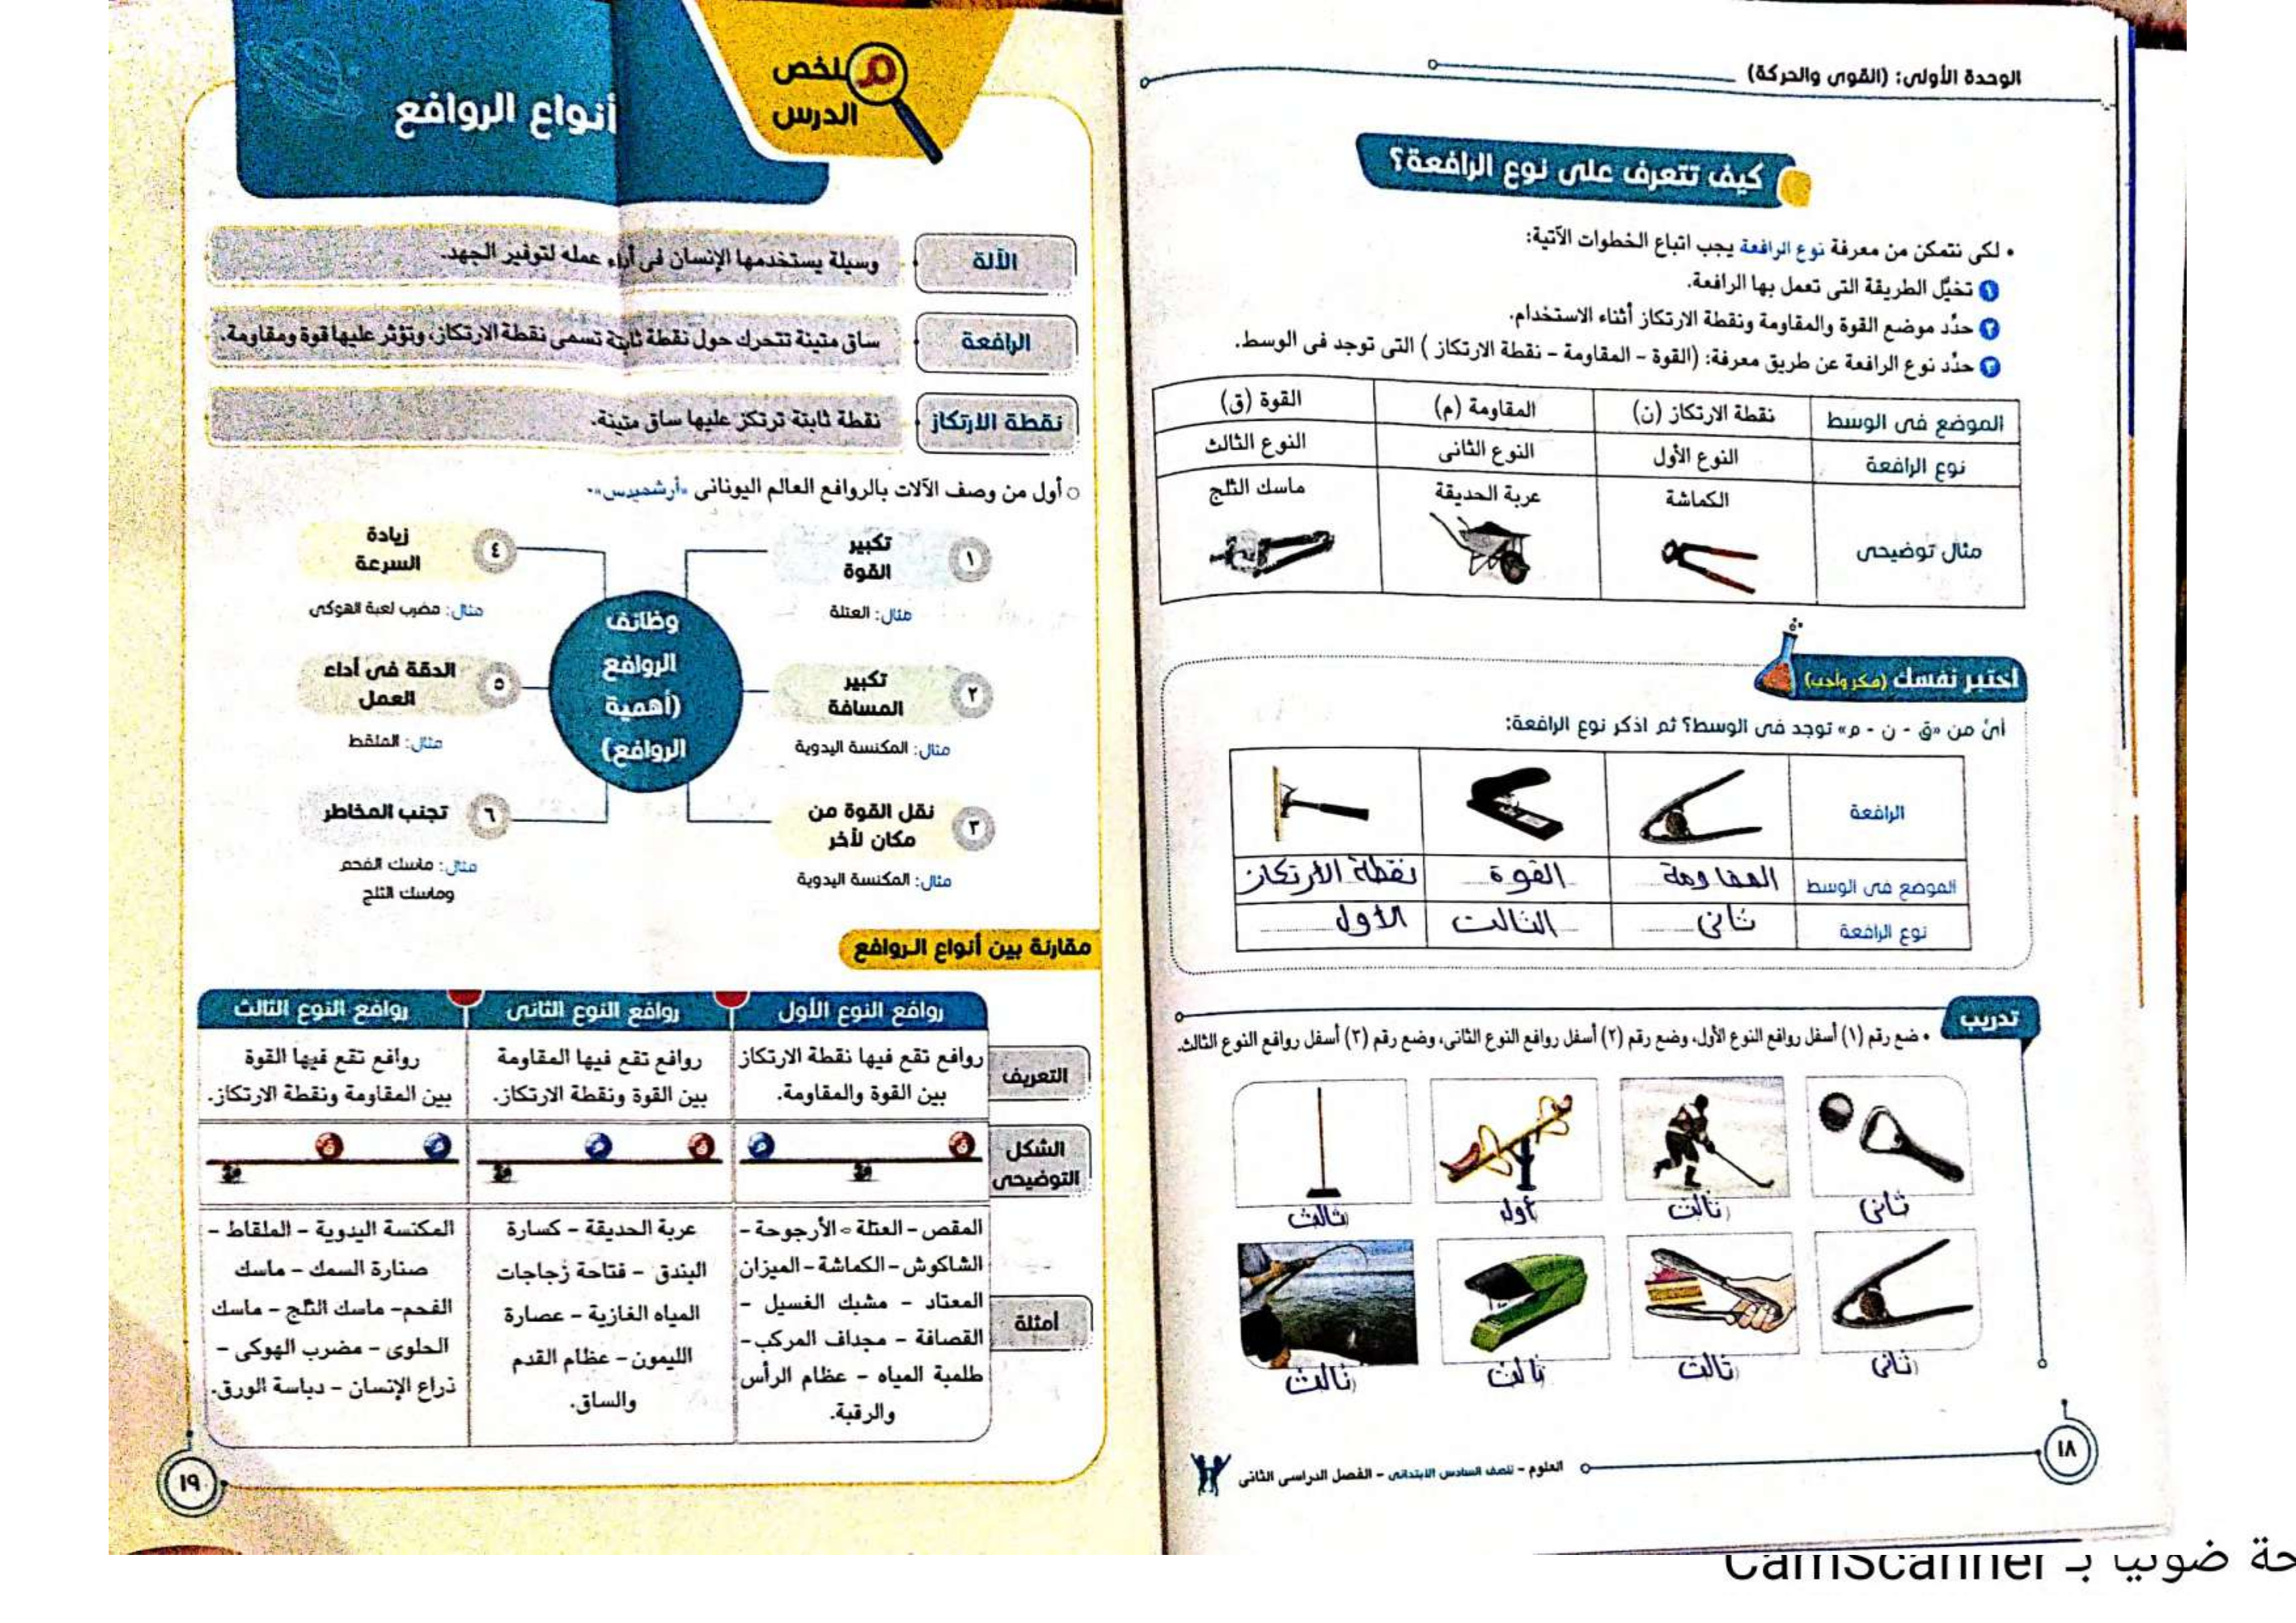 الوحدة الأولى: (القوى والحركة)
كيف تتعرف على نوع الرافعة؟
• لكى نتمكن من معرفة نوع الرافعة يجب اتباع الخطوات الآتية:
١ تخيَّل الطريقة التى تعمل بها الرافعة.
٢ حدِّد موضع القوة والمقاومة ونقطة الارتكاز أثناء الاستخدام.
٣ حدِّد نوع الرافعة عن طريق معرفة: (القوة - المقاومة - نقطة الارتكاز ) التى توجد فى الوسط.
الموضع فى الوسط نقطة الارتكاز (ن) المقاومة (م) القوة (ق)
نوع الرافعة النوع الأول النوع الثانى النوع الثالث
مثال توضيحى الكماشة عربة الحديقة ماسك الثلج
اختبر نفسك (فكر وأجب)
أىٌ من «ق - ن - م» توجد فى الوسط؟ ثم اذكر نوع الرافعة:
الرافعة
الموضع فى الوسط المقاومة القوة نقطة الارتكاز
نوع الرافعة ثانى الثالث الأول
تدريب
• ضع رقم (١) أسفل روافع النوع الأول، وضع رقم (٢) أسفل روافع النوع الثانى، وضع رقم (٣) أسفل روافع النوع الثالث.
ثانى ثالث أول ثالث
ثانى ثالث ثالث ثالث
١٨
العلوم - للصف السادس الابتدائى - الفصل الدراسى الثانى
ملخص
الدرس
أنواع الروافع
الآلة وسيلة يستخدمها الإنسان فى أداء عمله لتوفير الجهد.
الرافعة ساق متينة تتحرك حول نقطة ثابتة تسمى نقطة الارتكاز، وتؤثر عليها قوة ومقاومة.
نقطة الارتكاز نقطة ثابتة ترتكز عليها ساق متينة.
○ أول من وصف الآلات بالروافع العالم اليونانى «أرشميدس».
وظائف
الروافع
(أهمية
الروافع)
١ تكبير
القوة
مثال: العتلة
٢ تكبير
المسافة
مثال: المكنسة اليدوية
٣ نقل القوة من
مكان لآخر
مثال: المكنسة اليدوية
٤ زيادة
السرعة
مثال: مضرب لعبة الهوكى
٥ الدقة فى أداء
العمل
مثال: الملقط
٦ تجنب المخاطر
مثال: ماسك الفحم
وماسك الثلج
مقارنة بين أنواع الروافع
روافع النوع الأول روافع النوع الثانى روافع النوع الثالث
التعريف
روافع تقع فيها نقطة الارتكاز
بين القوة والمقاومة.
روافع تقع فيها المقاومة
بين القوة ونقطة الارتكاز.
روافع تقع فيها القوة
بين المقاومة ونقطة الارتكاز.
الشكل
التوضيحى
ق ن م
ق م ن
م ق ن
أمثلة
المقص - العتلة - الأرجوحة -
الشاكوش - الكماشة - الميزان
المعتاد - مشبك الغسيل -
القصافة - مجداف المركب -
طلمبة المياه - عظام الرأس
والرقبة.
عربة الحديقة - كسارة
البندق - فتاحة زجاجات
المياه الغازية - عصارة
الليمون - عظام القدم
والساق.
المكنسة اليدوية - الملقاط -
صنارة السمك - ماسك
الفحم - ماسك الثلج - ماسك
الحلوى - مضرب الهوكى -
ذراع الإنسان - دباسة الورق.
١٩
ضوئيا بـ CamScanner